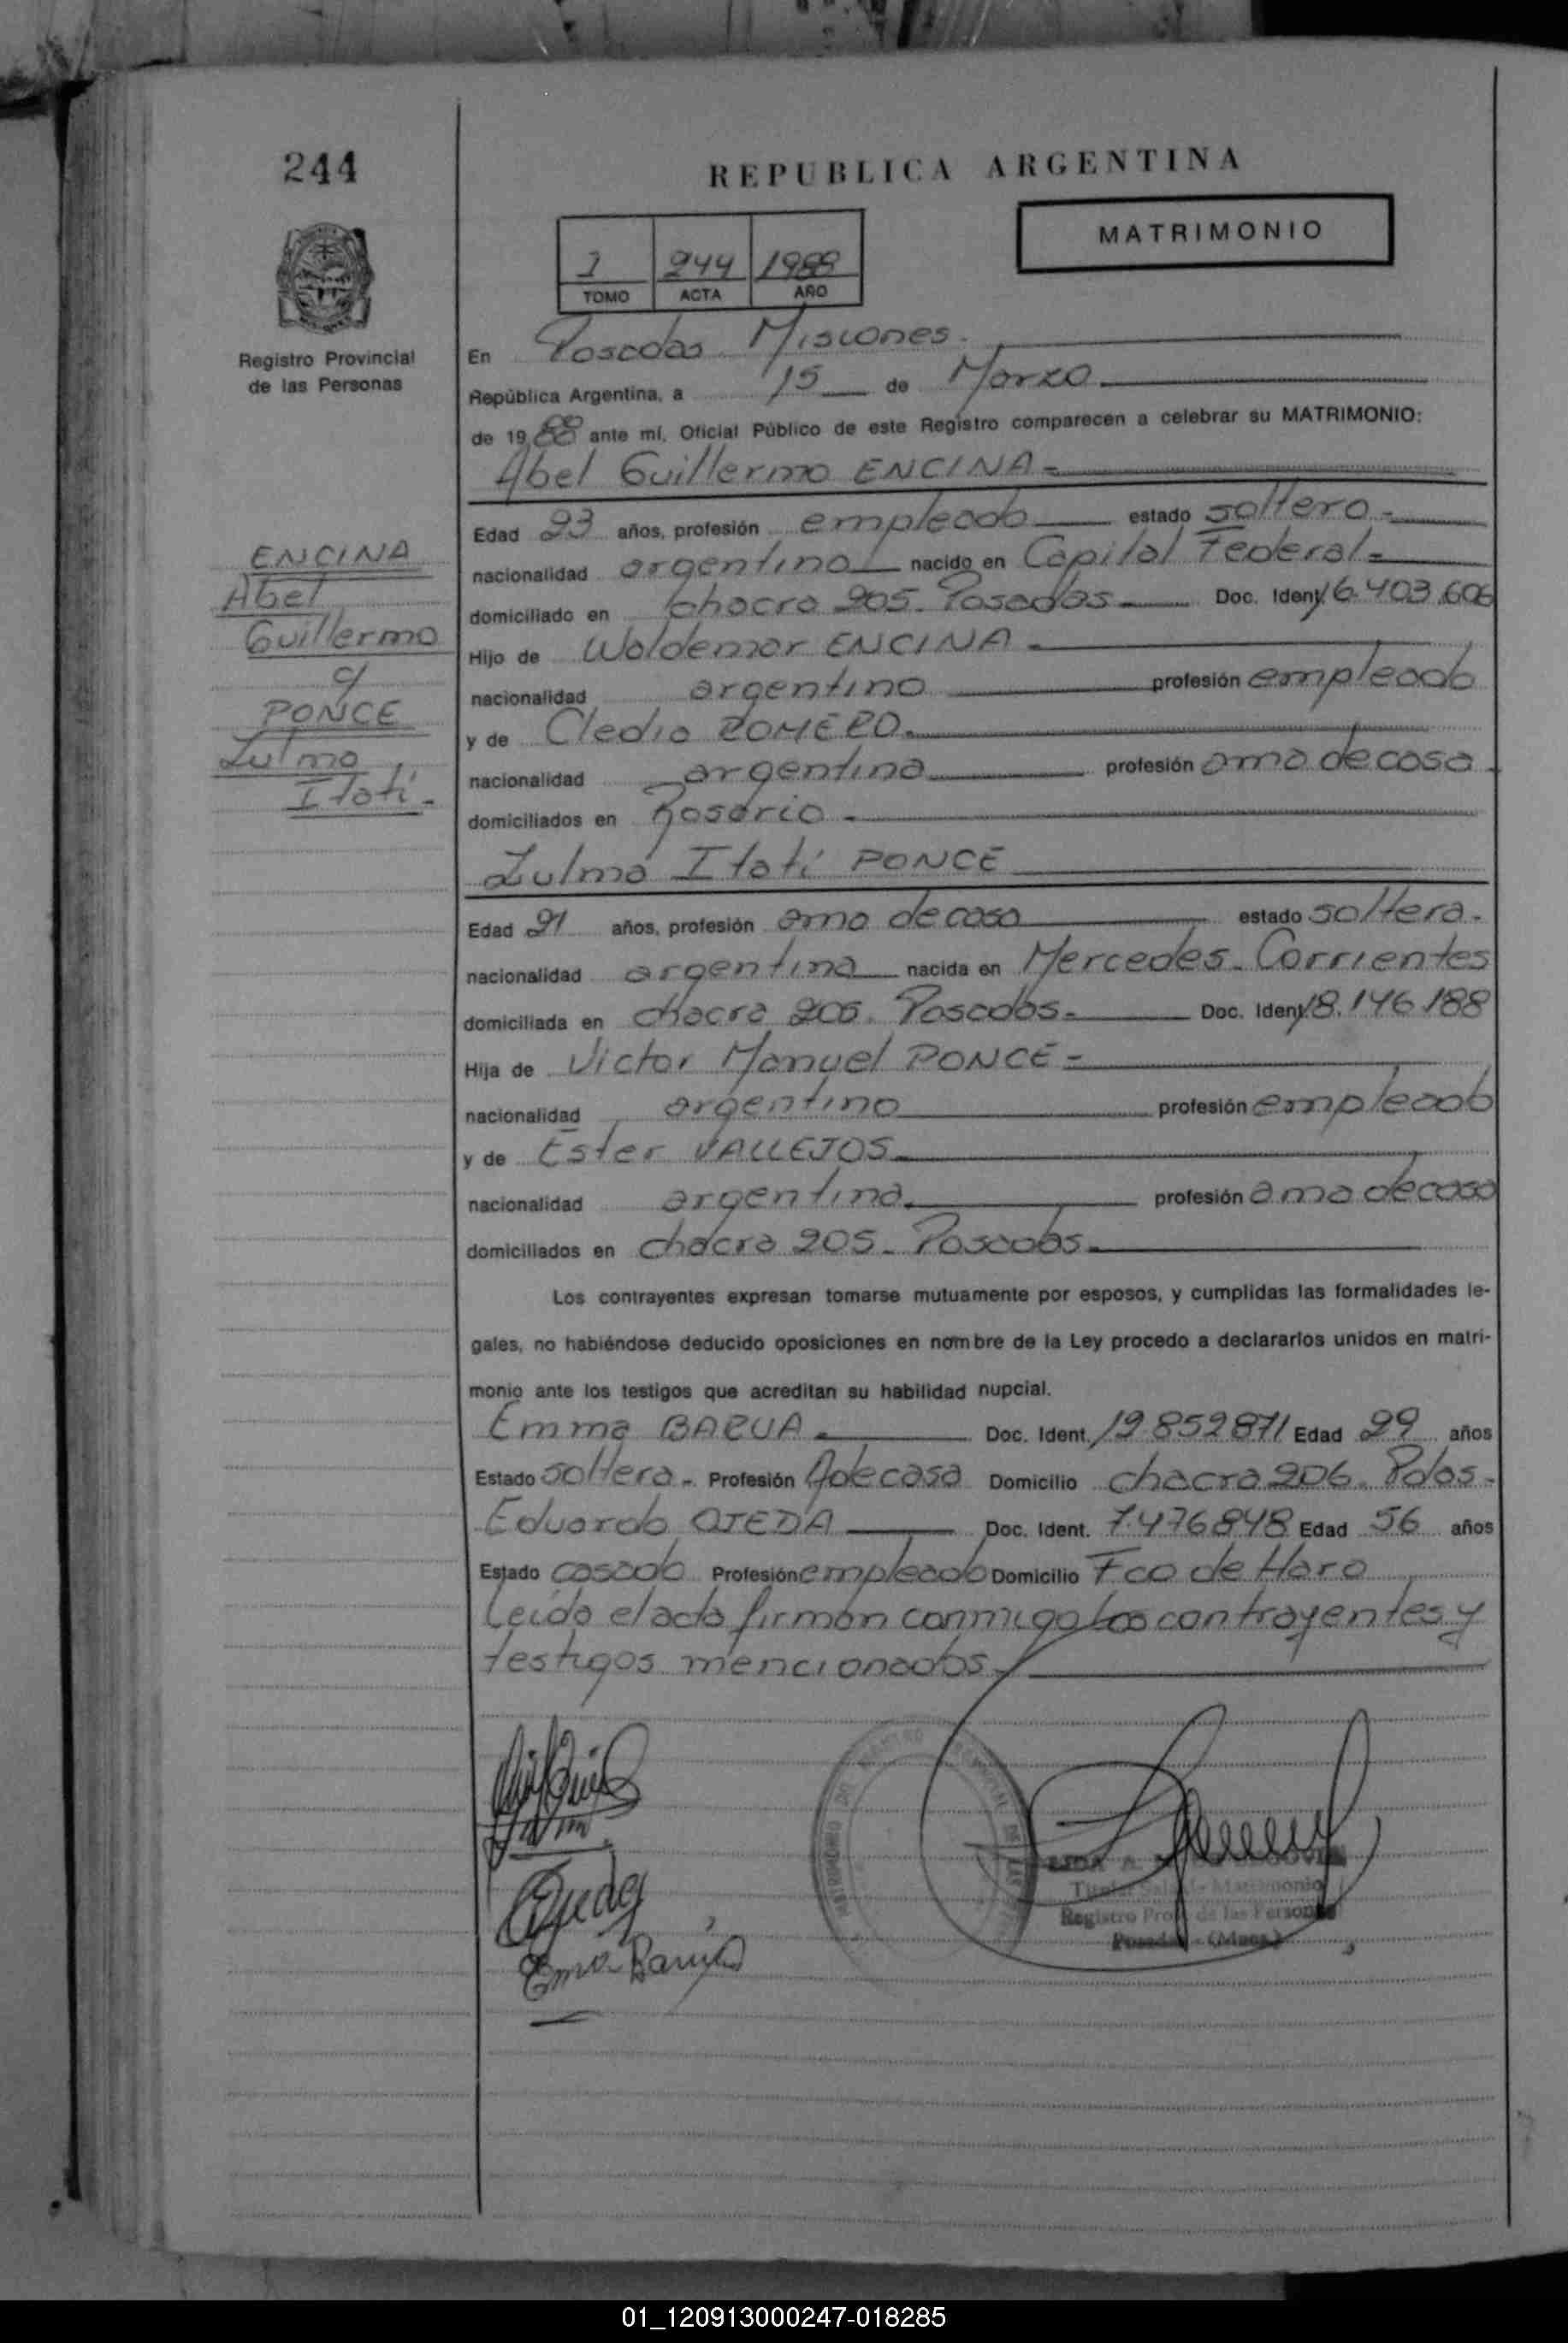 244
REPUBLICA ARGENTINA
MATRIMONIO
1 244 1988
TOMO ACTA AÑO
Registro Provincial
de las Personas
En Posadas Misiones.
República Argentina, a 15 de Marzo
de 1988 ante mí, Oficial Público de este Registro comparecen a celebrar su MATRIMONIO:
Abel Guillermo ENCINA
Edad 23 años, profesión empleado estado soltero
nacionalidad argentino nacido en Capital Federal
domiciliado en chacra 205. Posadas Doc. Ident. 16.403.606
Hijo de Waldemar ENCINA
nacionalidad argentino profesión empleado
y de Cledia ROMERO.
nacionalidad argentina profesión ama de casa
domiciliados en Rosario
ENCINA
Abel
Guillermo
c/
PONCE
Zulma
Itatí
Zulma Itatí PONCE
Edad 21 años, profesión ama de casa estado soltera.
nacionalidad argentina nacida en Mercedes. Corrientes
domiciliada en chacra 205. Posadas. Doc. Ident. 18.146.188
Hija de Victor Manuel PONCE
nacionalidad argentino profesión empleado
y de Ester VALLEJOS
nacionalidad argentina profesión ama de casa
domiciliados en chacra 205. Posadas.
Los contrayentes expresan tomarse mutuamente por esposos, y cumplidas las formalidades le-
gales, no habiéndose deducido oposiciones en nombre de la Ley procedo a declararlos unidos en matri-
monio ante los testigos que acreditan su habilidad nupcial.
Emma BARUA Doc. Ident. 12.852871 Edad 29 años
Estado soltera. Profesión Adecasa Domicilio chacra 206. Pdas.
Eduardo OJEDA Doc. Ident. 7.476848 Edad 56 años
Estado casado Profesión empleado Domicilio Fco de Haro
Leída el acta firman conmigo los contrayentes y
testigos mencionados.
Ojeda
Ema Barua
Titular Sala de Matrimonio
Registro Prov. de las Personas
Posadas - (Mnes.)
01_120913000247-018285